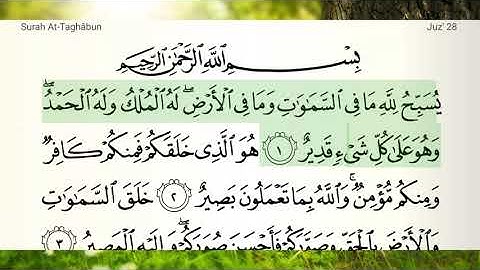 Surah At-Taghâbun Juz' 28
بِسْمِ اللَّهِ الرَّحْمَٰنِ الرَّحِيمِ
يُسَبِّحُ لِلَّهِ مَا فِى السَّمَٰوَٰتِ وَمَا فِى الْأَرْضِۖ لَهُ الْمُلْكُ وَلَهُ الْحَمْدُۖ
وَهُوَ عَلَىٰ كُلِّ شَىْءٍ قَدِيرٌ ۝١ هُوَ الَّذِى خَلَقَكُمْ فَمِنكُمْ كَافِرٌ
وَمِنكُم مُّؤْمِنٌۚ وَاللَّهُ بِمَا تَعْمَلُونَ بَصِيرٌ ۝٢ خَلَقَ السَّمَٰوَٰتِ
وَالْأَرْضَ بِالْحَقِّ وَصَوَّرَكُمْ فَأَحْسَنَ صُوَرَكُمْۖ وَإِلَيْهِ الْمَصِيرُ ۝٣